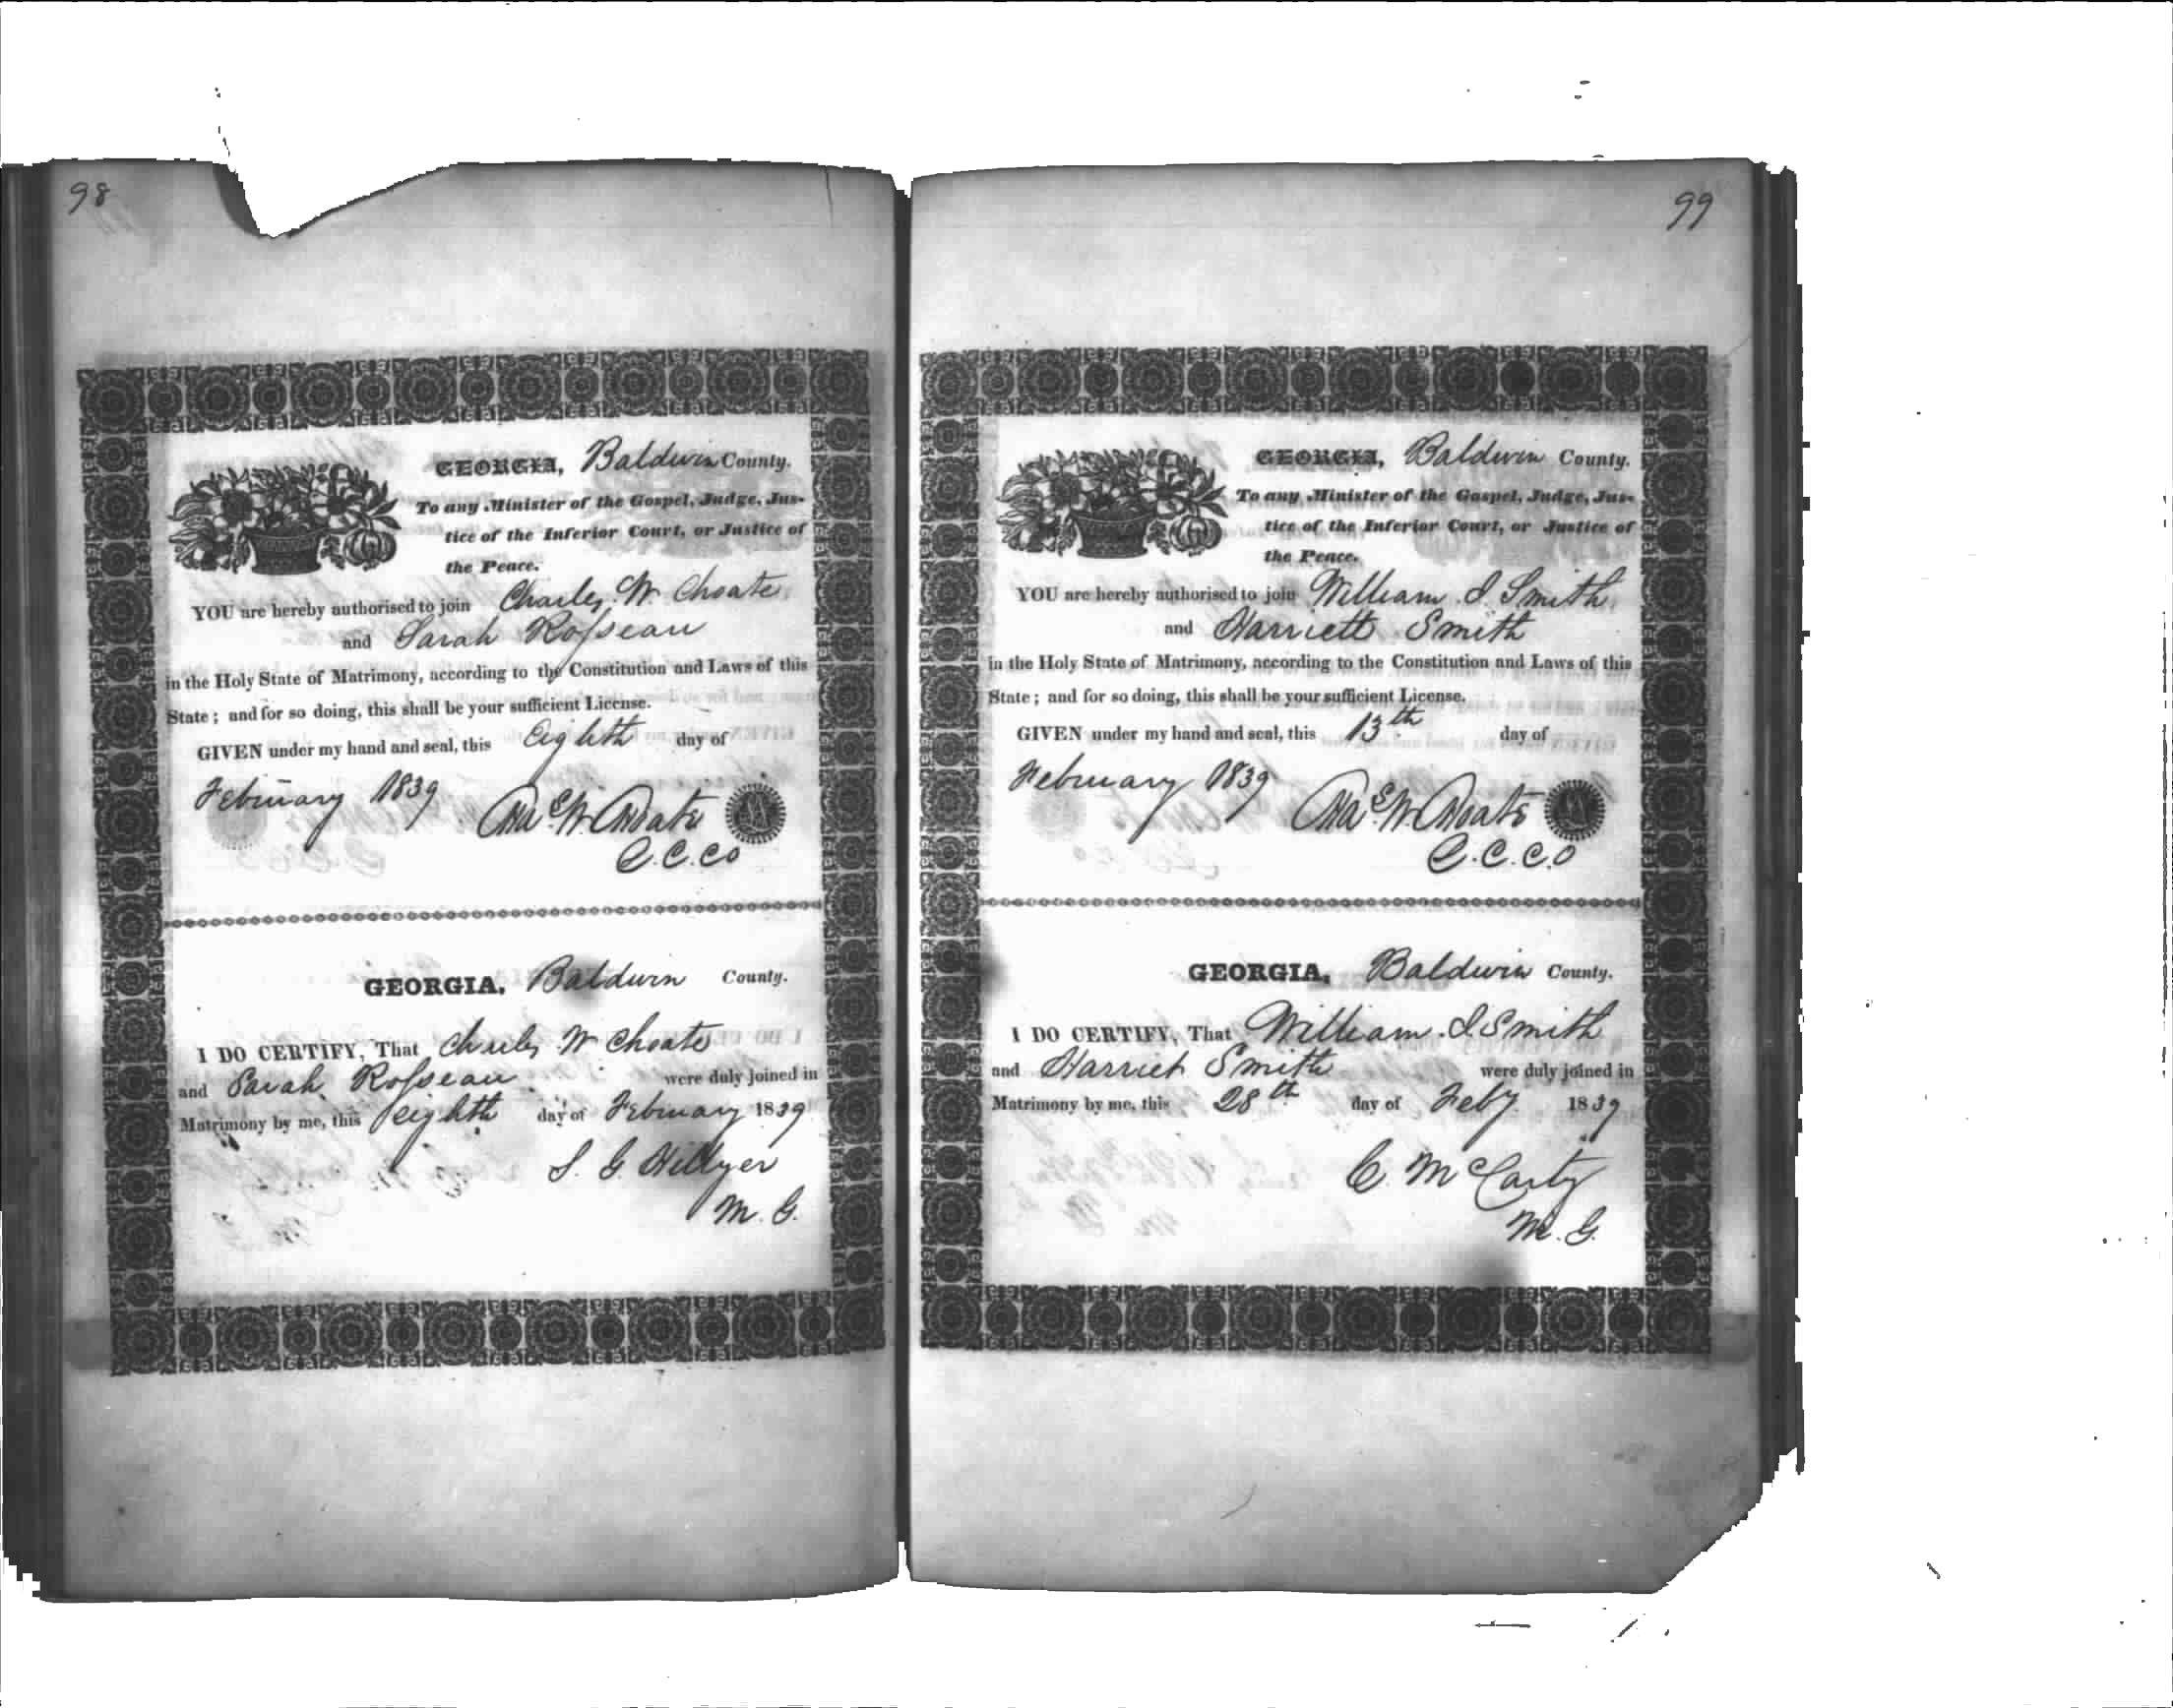 98
GEORGIA, Baldwin County.
To any Minister of the Gospel, Judge, Jus-
tice of the Inferior Court, or Justice of
the Peace.
YOU are hereby authorised to join Charles W. Choate
and Sarah Roſseau
in the Holy State of Matrimony, according to the Constitution and Laws of this
State; and for so doing, this shall be your sufficient License.
GIVEN under my hand and seal, this Eighth day of
February 1839
Chas. W. Choate
C.C.C.O
GEORGIA, Baldwin County.
I DO CERTIFY, That Charles W Choate
and Sarah Roſseau were duly joined in
Matrimony by me, this eighth day of February 1839
S. G. Hillyer
M. G.
99
GEORGIA, Baldwin County.
To any Minister of the Gospel, Judge, Jus-
tice of the Inferior Court, or Justice of
the Peace.
YOU are hereby authorised to join William I. Smith
and Harriett Smith
in the Holy State of Matrimony, according to the Constitution and Laws of this
State; and for so doing, this shall be your sufficient License.
GIVEN under my hand and seal, this 13th day of
February 1839
Chas. W. Choate
C.C.C.O
GEORGIA, Baldwin County.
I DO CERTIFY, That William I. Smith
and Harriet Smith were duly joined in
Matrimony by me, this 28th day of Feby 1839
C. McCarty
M. G.